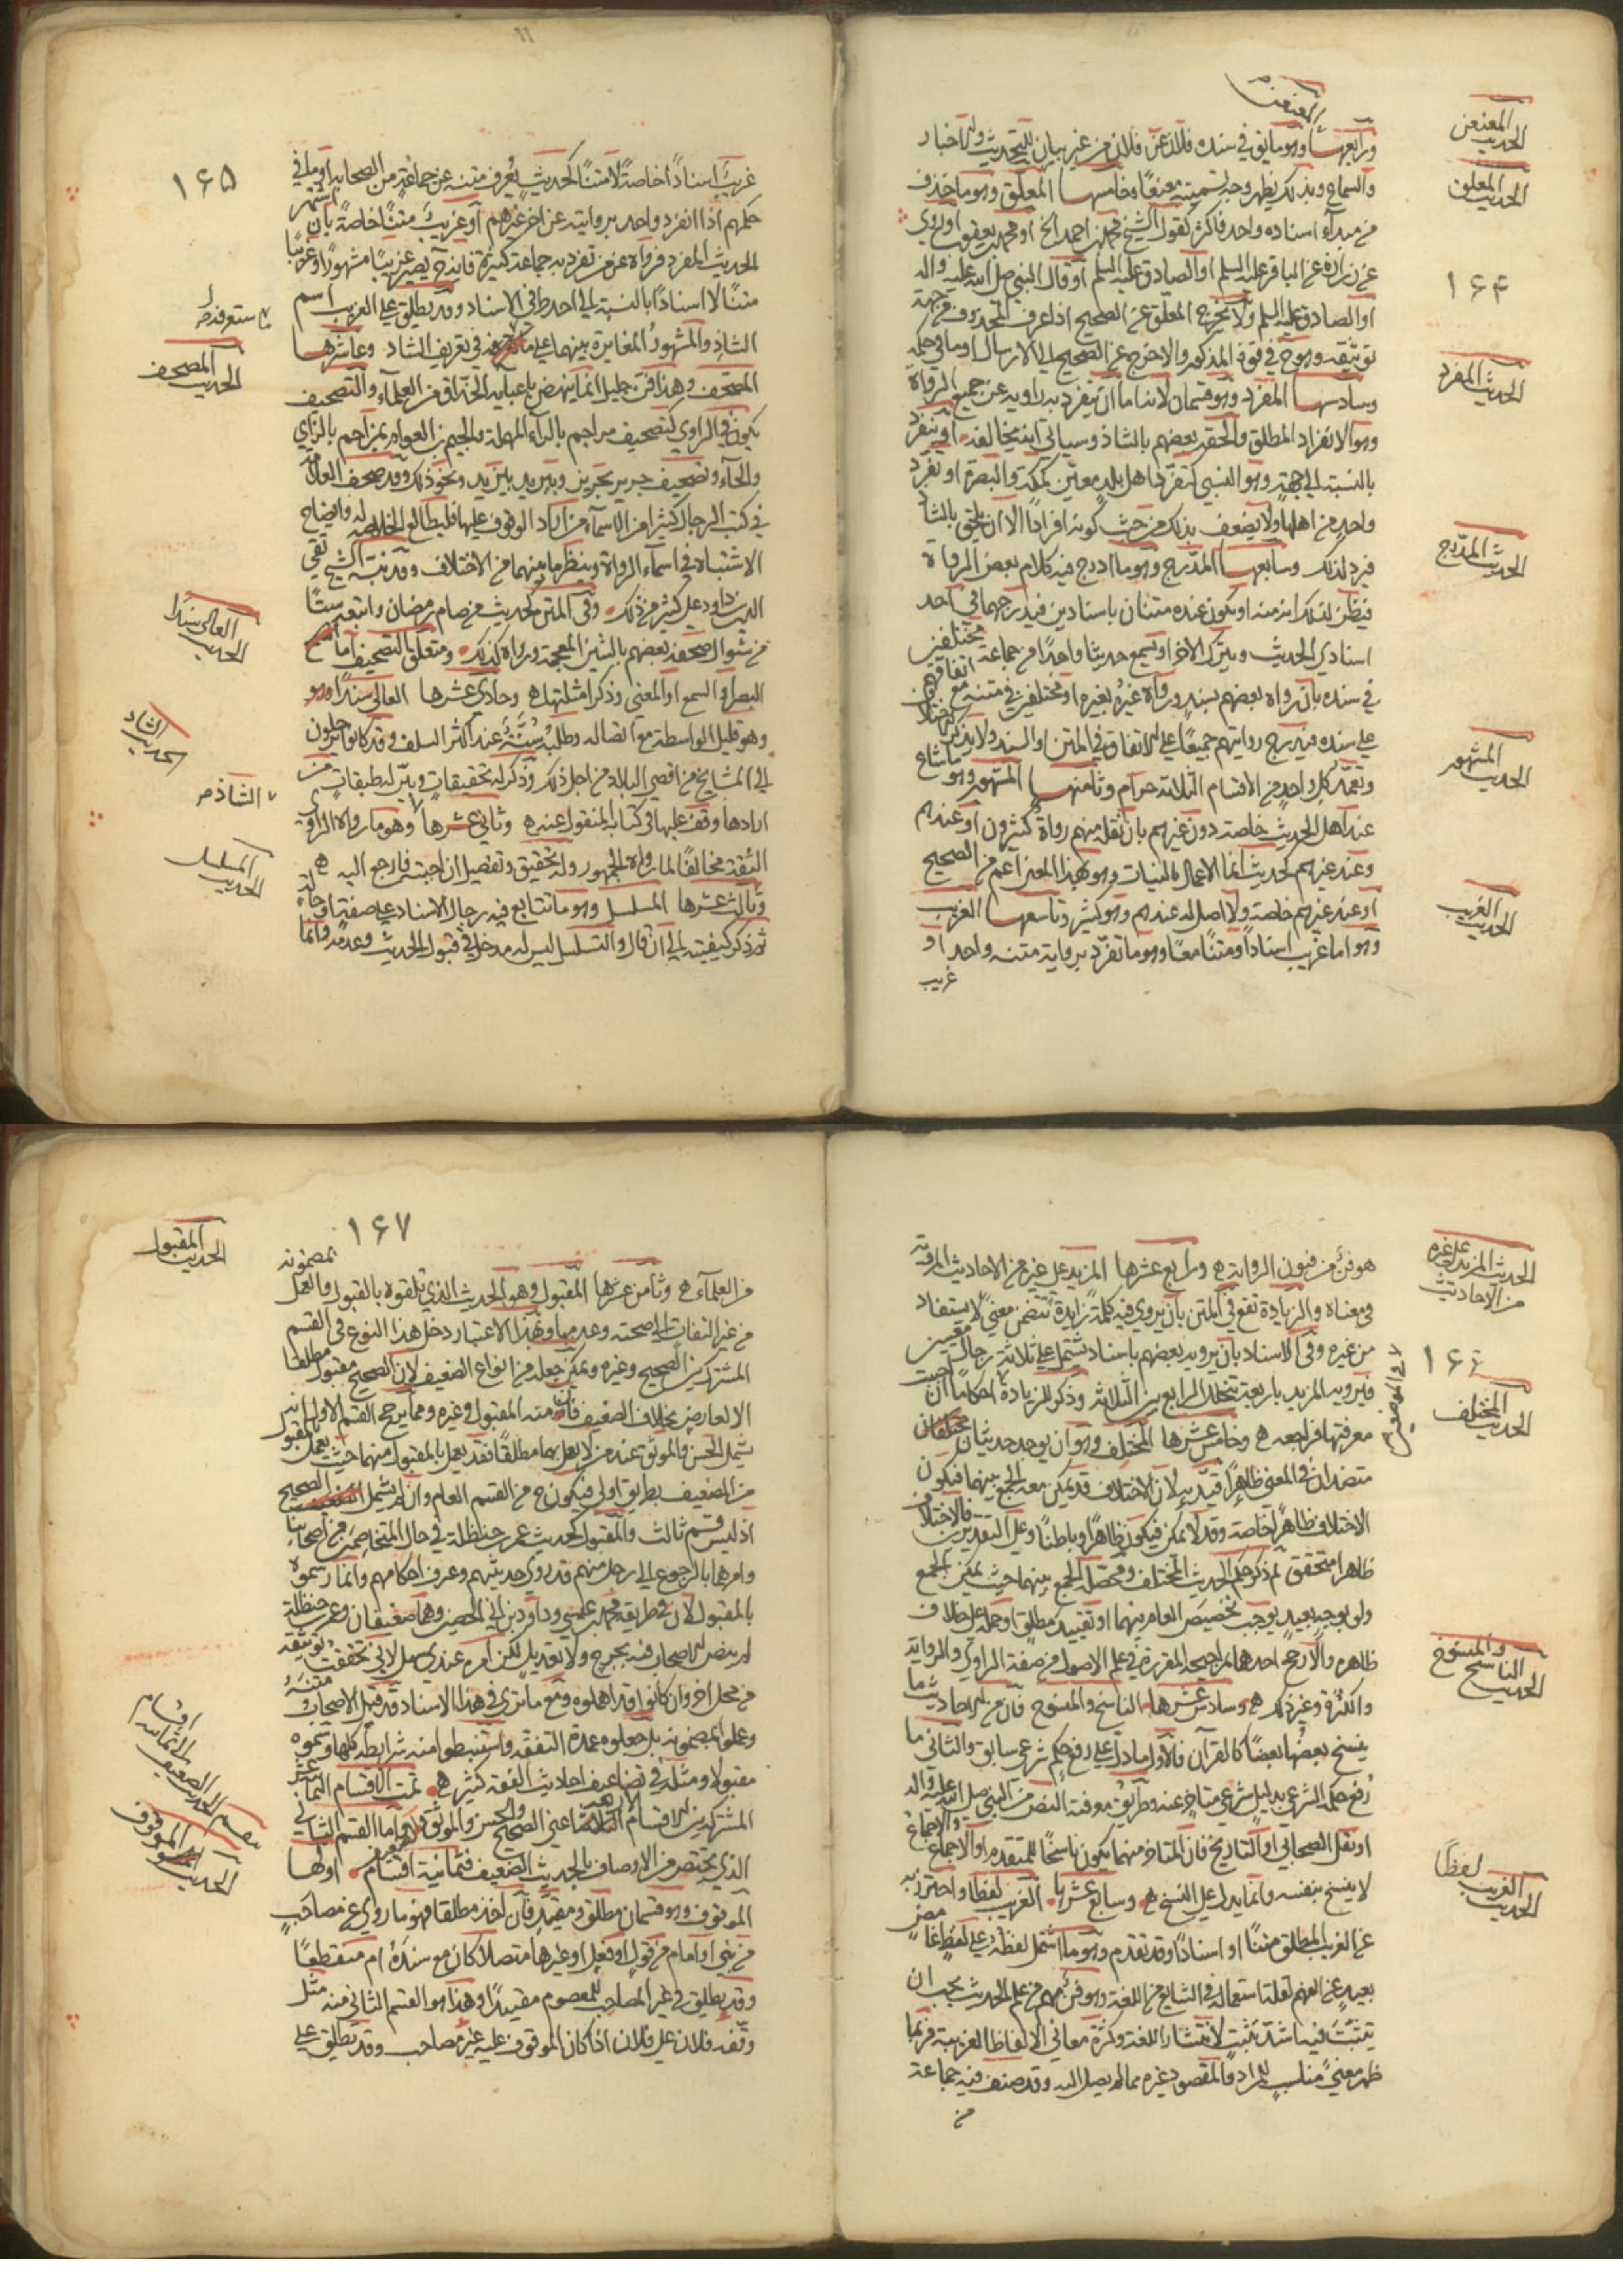 المعنعن
ورابعها وهو ما يق في سنده فلان عن فلان من غير بيان للتحديث والاخبار
والسماع وبذلك يظهر وجه تسميته معنعنا وخامسها المعلق وهو ما حذف
من مبدأ اسناده واحد فاكثر كقول الشيخ محمد بن احمد الخ او محمد بن يعقوب او روى
عن زرارة عن الباقر عليه السلم او الصادق عليه السلم او قال النبي صلى الله عليه واله
او الصادق عليه السلم ولا يخرج المعلق عن الصحيح اذا عرف المحذوف من جهة
توثيقه وهو ح في قوة المذكور والا خرج عن الصحيح الى الارسال او ما في حكمه
وسادسها المفرد وهو قسمان لانه اما ان يتفرد به راويه عن جميع الرواة
وهو الانفراد المطلق والحقه بعضهم بالشاذ وسياتي انه يخالفه او يتفرد
بالنسبة الى جهة وهو النسبي كتفرد اهل بلد معين كمكة والبصرة او تفرد
واحد من اهلها ولا يضعف بذلك من حيث كونه افرادا الا ان يلحق بالشاذ
فيرد لذلك وسابعها المدرج وهو ما ادرج فيه كلام بعض الرواة
فيظن لذلك انه منه او يكون عنده متنان باسنادين فيدرجهما في احد
اسنادي الحديث ويترك الاخر او يسمع حديثا واحدا من جماعة مختلفين
في سنده بان رواه بعضهم بسند ورواه غيره بغيره او مختلفين في متنه مع اتفاقهم
على سنده فيدرج روايتهم جميعا على الاتفاق في المتن او السند ولا يذكر الاختلاف
وتعمد كل واحد من الاقسام الثلاثة حرام وثامنها المشهور وهو ما شاع
عند اهل الحديث خاصة دون غيرهم بان نقله منهم رواة كثيرون او عندهم
وعند غيرهم كحديث انما الاعمال بالنيات وهو بهذا المعنى اعم من الصحيح
او عند غيرهم خاصة ولا اصل له عندهم وهو كثير وتاسعها الغريب
وهو اما غريب اسنادا ومتنا معا وهو ما تفرد برواية متنه واحد او
غريب
الحديث المعنعن
الحديث المعلق
۱۶۴
الحديث المفرد
الحديث المدرج
الحديث المشهور
الحديث الغريب
۱۶۵
غريب اسنادا خاصة لا متنا كحديث يعرف متنه عن جماعة من الصحابة او ما في
حكمهم اذا انفرد واحد بروايته عن اخر غيرهم او غريب متنا خاصة بان اشتهر
الحديث المفرد فرواه عن من تفرد به جماعة كثيرة فانه ح يصير غريبا مشهورا وغريبا
متنا لا اسنادا بالنسبة الى احد طرفي الاسناد وقد يطلق على الغريب اسم
الشاذ والمشهور المغايرة بينهما على ما ستعرفه في تعريف الشاذ وعاشرها
المصحف وهذا فن جليل انما ينهض باعبائه الحذاق من العلماء والتصحيف
يكون في الراوي كتصحيف مراجم بالراء المهملة والجيم بن العوام بمزاحم بالزاي
والحاء وتصحيف جرير بحريز وبريد بيزيد ونحو ذلك وقد صحف العلامة
في كتب الرجال كثيرا من الاسماء من اراد الوقوف عليها فليطالع الخلاصة له وايضاح
الاشتباه في اسماء الرواة وينظر ما بينهما من الاختلاف وقد نبه الشيخ تقي
الدين بن داود على كثير من ذلك وفي المتن كحديث من صام رمضان واتبعه ستا
من شوال صحفه بعضهم بالشين المعجمة ورواه كذلك ومتعلق التصحيف اما
البصر او السمع او المعنى وذكر امثلتها ه وحادي عشرها العالي سندا وهو
وهو قليل الواسطة مع اتصاله وطلبه سنة عند اكثر السلف وقد كانوا يرحلون
الى المشايخ من اقصى البلاد من اجل ذلك وذكر له تحقيقات وبين له طبقات من
ارادها وقف عليها في كتابه المنقول عنه ه وثاني عشرها وهو ما رواه الراوي
الثقة مخالفا لما رواه الجمهور وله تحقيق وتفصيل ان احببته فارجع اليه ه
وثالث عشرها المسلسل وهو ما تتابع فيه رجال الاسناد على صفة او حالة
ثم ذكر كيفيته الى ان قال والتسلسل ليس له مدخل في قبول الحديث وعدمه وانما
ستعرفه
الحديث المصحف
الحديث العالي سندا
الحديث الشاذ
الشاذ
الحديث المسلسل
هو فن من فنون الرواية ه ورابع عشرها المزيد على غيره من الاحاديث المروية
في معناه والزيادة تقع في المتن بان يروى فيه كلمة زايدة تتضمن معنى لا يستفاد
من غيره وفي الاسناد بان يرويه بعضهم باسناد يشتمل على ثلاثة رجال معينين
فيرويه المزيد باربعة يتخلل الرابع بين الثلاثة وذكر للزيادة احكاما ان احببت
معرفتها فراجعه ه وخامس عشرها المختلف وهو ان يوجد حديثان مختلفان
متضادان في المعنى ظاهرا قيد به لان الاختلاف قد يمكن معه الجمع بينهما فيكون
الاختلاف ظاهرا خاصة وقد لا يمكن فيكون ظاهرا وباطنا وعلى التقديرين فالاختلاف
ظاهرا متحقق ثم ذكر حكم الحديث المختلف ومحصله الجمع بينهما حيث يمكن الجمع
ولو بوجه بعيد يوجب تخصيص العام بينهما او تقييد مطلق او حمله على خلاف
ظاهره والا رجح احدهما بمراجحه المقررة في علم الاصول من صفة الراوي والرواية
والكثرة وغير ذلك ه وسادس عشرها الناسخ والمنسوخ فان من الاحاديث ما
ينسخ بعضها بعضا كالقرآن فالاول ما دل على رفع حكم شرعي سابق والثاني ما
رفع حكمه الشرعي بدليل شرعي متاخر عنه وطريق معرفته النص من النبي صلى الله عليه واله
او نقل الصحابي او التاريخ فان المتاخر منهما يكون ناسخا للمتقدم او الاجماع والاجماع
لا ينسخ بنفسه وانما يدل على النسخ ه وسابع عشرها الغريب لفظا واحترز به
عن الغريب المطلق متنا او اسنادا وقد تقدم وهو ما اشتمل لفظه على لفظ غامض
بعيد عن الفهم لقلة استعماله في الشايع من اللغة وهو فن مهم من علم الحديث يجب ان
يتثبت فيه اشد تثبت لانتشار اللغة وكثرة معاني الالفاظ الغريبة فربما
ظهر معنى مناسب للمراد والمقصود غيره مما لم يصل اليه وقد صنف فيه جماعة
من
الحديث المزيد على غيره
من الاحاديث
۱۶۶
الحديث المختلف
الحديث الناسخ والمنسوخ
الحديث الغريب لفظا
۱۶۷
من العلماء ه وثامن عشرها المقبول وهو الحديث الذي تلقوه بالقبول والعمل بمضمونه
من غير التفات الى صحته وعدمها وبهذا الاعتبار دخل هذا النوع في القسم
المشترك بين الصحيح وغيره ويمكن جعله من انواع الضعيف لان الصحيح مقبول مطلقا
الا لعارض بخلاف الضعيف فان منه المقبول وغيره ومما يرجح القسم الاول انه
يشمل الحسن والموثق عند من لا يعمل بهما مطلقا فقد يعمل بالمقبول منهما حيث يعمل بالمقبول
من الضعيف بطريق اولى فيكون ح من القسم العام وان لم يشمل الصحيح
اذ ليس ثم قسم ثالث والمقبول كحديث عمر بن حنظلة في حال المتخاصمين من اصحابنا
وامرهما بالرجوع الى رجل منهم قد روى حديثهم وعرف احكامهم وانما وسموه
بالمقبول لان في طريقه محمد بن عيسى وداود بن الحصين وهما ضعيفان وعمر بن حنظلة
لم ينص الاصحاب فيه بجرح ولا تعديل لكن امره عندي سهل لاني حققت توثيقه
من محل اخر وان كانوا قد اهملوه ومع ما ترى في هذا الاسناد قد قبل الاصحاب متنه
وعملوا بمضمونه بل جعلوه عمدة التفقه واستنبطوا منه شرايطه كلها وسموه
مقبولا ومثله في تضاعيف احاديث الفقه كثير ه تمت الاقسام الثمانية عشر
المشتركة بين الاقسام الاربعة اعني الصحيح والحسن والموثق والضعيف واما القسم الثاني
الذي يختص من الاوصاف بالحديث الضعيف فثمانية اقسام اولها
الموقوف وهو قسمان مطلق ومقيد فان اخذ مطلقا فهو ما روي عن مصاحب
من نبي او امام من قول او فعل او غيرهما متصلا كان مع سنده ام منقطعا
وقد يطلق في غير المصاحب للمعصوم مقيدا وهذا هو القسم الثاني منه مثل
وقفه فلان على فلان اذا كان الموقوف عليه غير مصاحب وقد يطلق على
الحديث المقبول
الحديث الموقوف